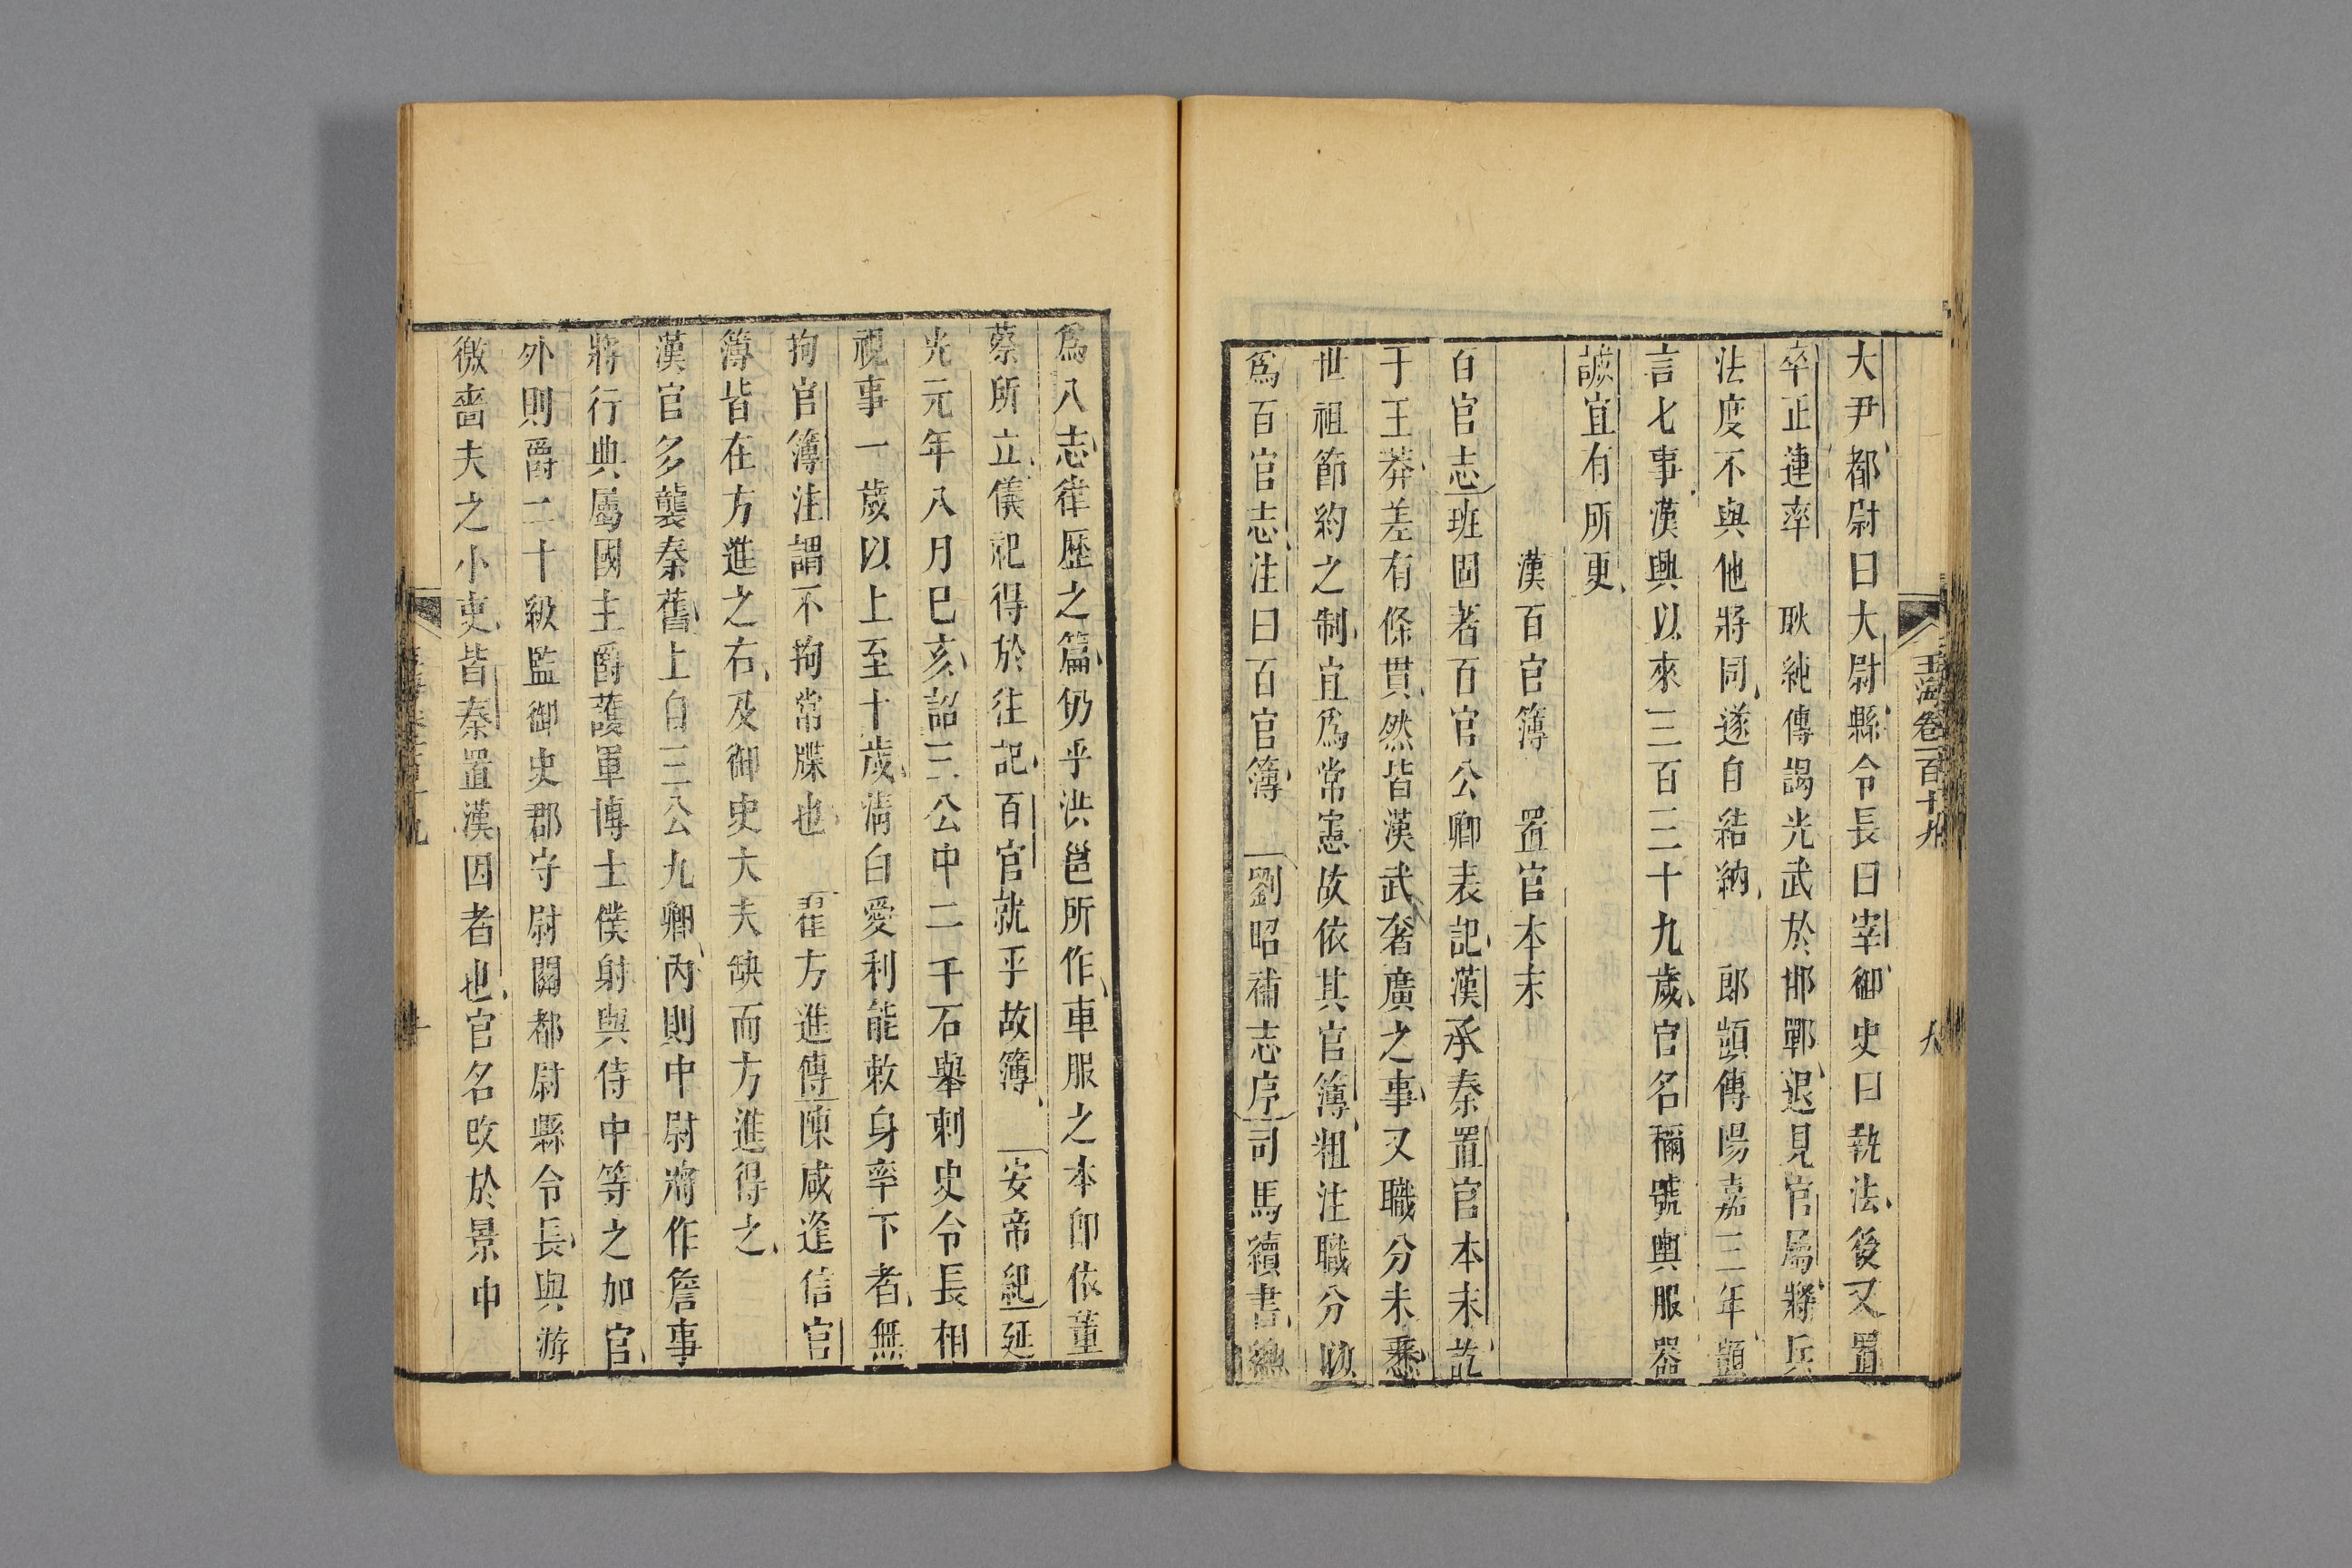 玉海卷一百十九 九
大尹都尉曰大尉縣令長曰宰御史曰執法後又置
卒正連率 耿純傳謁光武於邯鄲退見官屬將兵
法度不與他將同遂自結納 郎顗傳陽嘉三年顗
言七事漢興以來三百三十九歲官名稱號輿服器
諴宜有所更
漢百官簿 置官本末
百官志班固著百官公卿表記漢承秦置官本末訖
于王莽差有條貫然皆漢武奢廣之事又職分未悉
世祖節約之制宜爲常憲故依其官簿粗注職分以
爲百官志注曰百官簿 劉昭補志序司馬續書總
爲八志律歷之篇仍乎洪邕所作車服之本卽依董
蔡所立儀祀得於往記百官就乎故簿 安帝紀延
光元年八月巳亥詔三公中二千石舉刺史令長相
視事一歲以上至十歲清白愛利能敕身率下者無
拘官簿注謂不拘常牒也 翟方進傳陳咸逢信官
簿皆在方進之右及御史大夫缺而方進得之
漢官多襲秦舊上自三公九卿內則中尉將作詹事
將行典屬國主爵護軍博士僕射與侍中等之加官
外則爵二十級監御史郡守尉關都尉縣令長與游
徼嗇夫之小吏皆秦置漢因者也官名改於景中
十